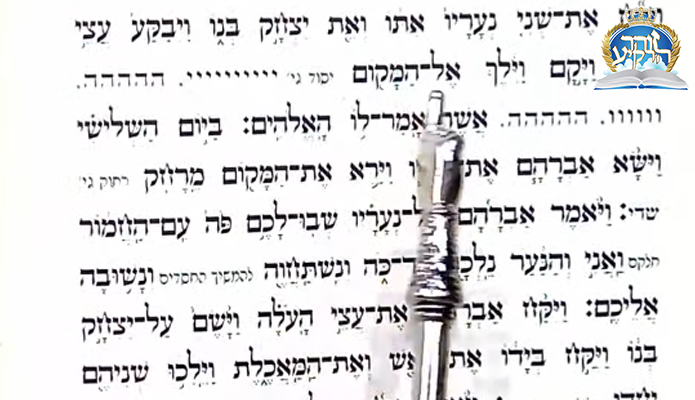 אֶת־שְׁנֵי נְעָרָיו אִתּוֹ וְאֵת יִצְחָק בְּנוֹ וַיְבַקַּע עֲצֵי
וַיָּקָם וַיֵּלֶךְ אֶל־הַמָּקוֹם יסוד גי׳ יייייייייי. הההההה.
וווווו. הההההה. אֲשֶׁר אָמַר־לוֹ הָאֱלֹהִים: בַּיּוֹם הַשְּׁלִישִׁי
וַיִּשָּׂא אַבְרָהָם אֶת וַיַּרְא אֶת־הַמָּקוֹם מֵרָחֹק רתוק גי׳
שדי: וַיֹּאמֶר אַבְרָהָם נְעָרָיו שְׁבוּ־לָכֶם פֹּה עִם־הַחֲמוֹר
חלקם וַאֲנִי וְהַנַּעַר נֵלְכָה כֹּה וְנִשְׁתַּחֲוֶה להמשיך החסדים וְנָשׁוּבָה
אֲלֵיכֶם: וַיִּקַּח אַבְרָ אֶת־עֲצֵי הָעֹלָה וַיָּשֶׂם עַל־יִצְחָק
בְּנוֹ וַיִּקַּח בְּיָדוֹ אֶת אֵשׁ וְאֶת־הַמַּאֲכֶלֶת וַיֵּלְכוּ שְׁנֵיהֶם